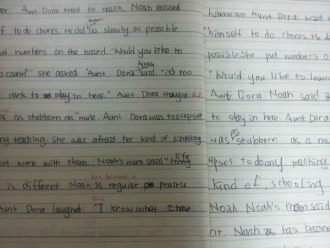 er. Aunt Dora tried to teach. Noah asked
f to do chores. He did as slowly as possible
ut numbers on the board. "Would you like to
count?" she asked "Aunt Dora" said. "It's too
dark to stay in here." Aunt Dora thought
as stubborn as mule. Aunt Dora was too upset
ny teaching. She was afraid her kind of schooling
not work with Noah. Noah's mom said "life
is different Noah is regular practice
Aunt Dora laughed "I know what I have
Aunt Dora tried
himself to do chores. He d
possible. She put numbers o
"Would you like to learn
Aunt Dora Noah said
to stay in here. Aunt Dora
was as stubborn as a mu
upset to do any teaching
kind of schooling
Noah Noah's mom said
nt. Noah has become